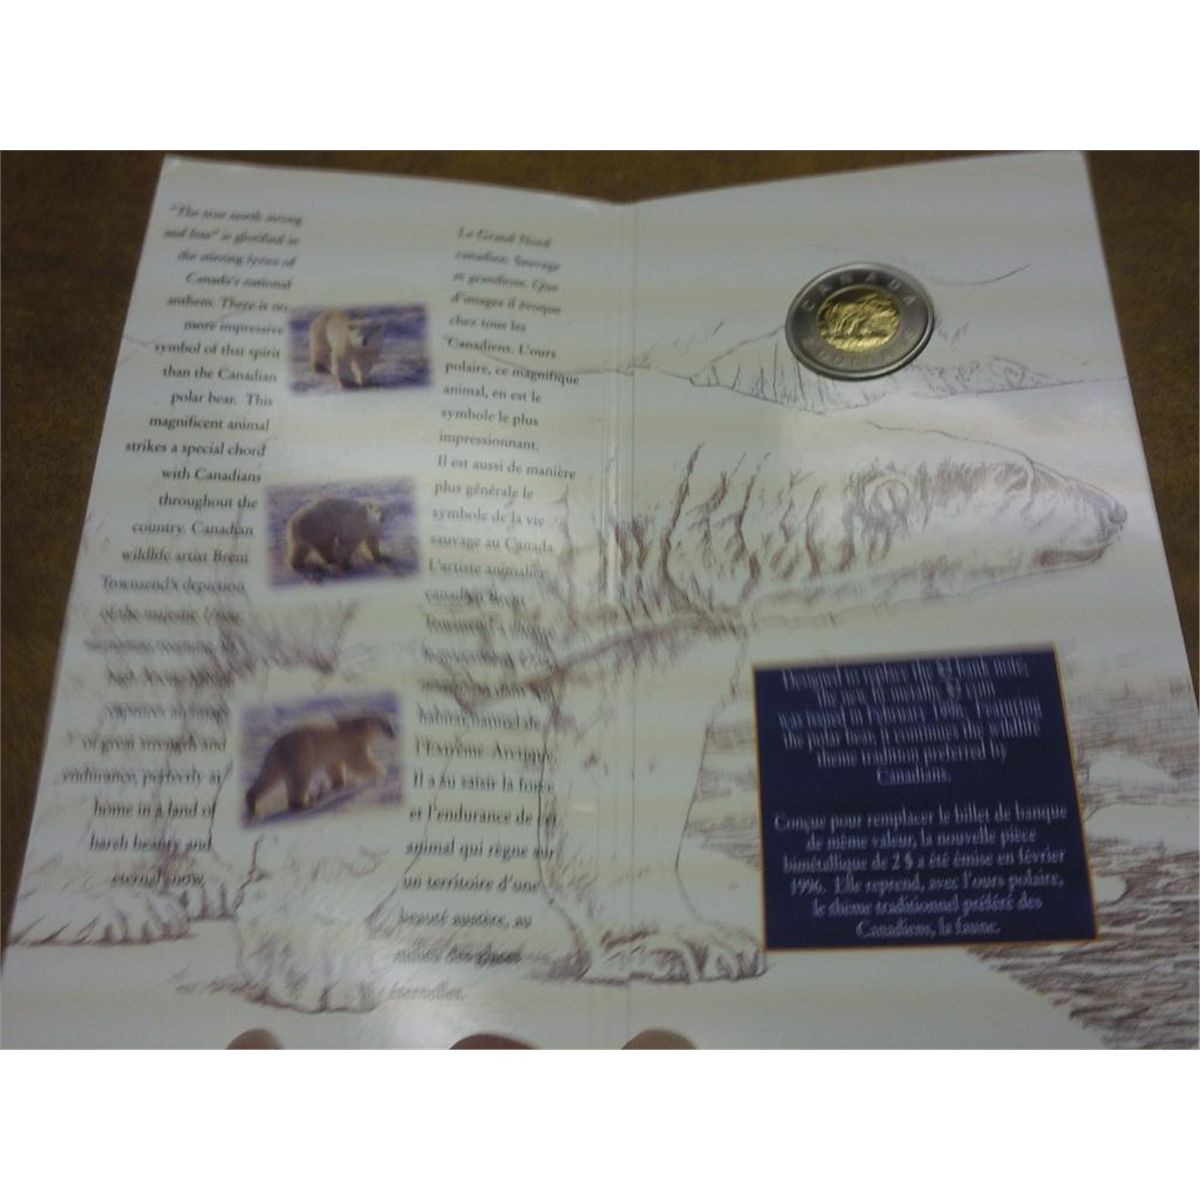 "The true north strong
and free" is glorified in
the stirring lyrics of
Canada's national
anthem. There is no
more impressive
symbol of that spirit
than the Canadian
polar bear. This
magnificent animal
strikes a special chord
with Canadians
throughout the
country. Canadian
wildlife artist Brent
Townsend's depiction
of the majestic
captures an image
of great strength and
endurance, perfectly at
home in a land of
harsh beauty and
eternal snow.
Le Grand Nord
canadien. Sauvage
et grandiose. Que
d'images il évoque
chez tous les
Canadiens. L'ours
polaire, ce magnifique
animal, en est le
symbole le plus
impressionnant.
Il est aussi de manière
plus générale le
symbole de la vie
sauvage au Canada.
L'artiste animalier
canadien Brent
Townsend a
habitat naturel de
l'Extrême-Arctique.
Il a su saisir la force
et l'endurance de cet
animal qui règne sur
un territoire d'une
beauté austère, au
milieu des glaces
éternelles.
CANADA
Designed to replace the $2 bank note,
the new bi-metallic $2 coin
was issued in February, 1996. Featuring
the polar bear, it continues the wildlife
theme tradition preferred by
Canadians.
Conçue pour remplacer le billet de banque
de même valeur, la nouvelle pièce
bimétallique de 2 $ a été émise en février
1996. Elle reprend, avec l'ours polaire,
le thème traditionnel préféré des
Canadiens, la faune.